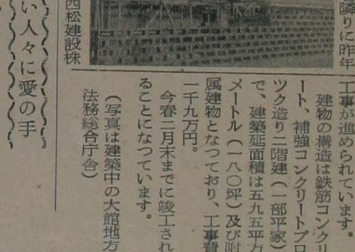 隣りに昨年
工事が進められています。
建物の構造は鉄筋コンクリ
ート、補強コンクリートブロ
ツク造り二階建(一部平家)
で、建築延面積は五九五平方
メートル(一八〇坪)及び附
属建物となつており、工事費
一千九万円。
今春三月末までに竣工され
ることになつています。
(写真は建築中の大館地方
法務総合庁舎)
西松建設株
い人々に愛の手